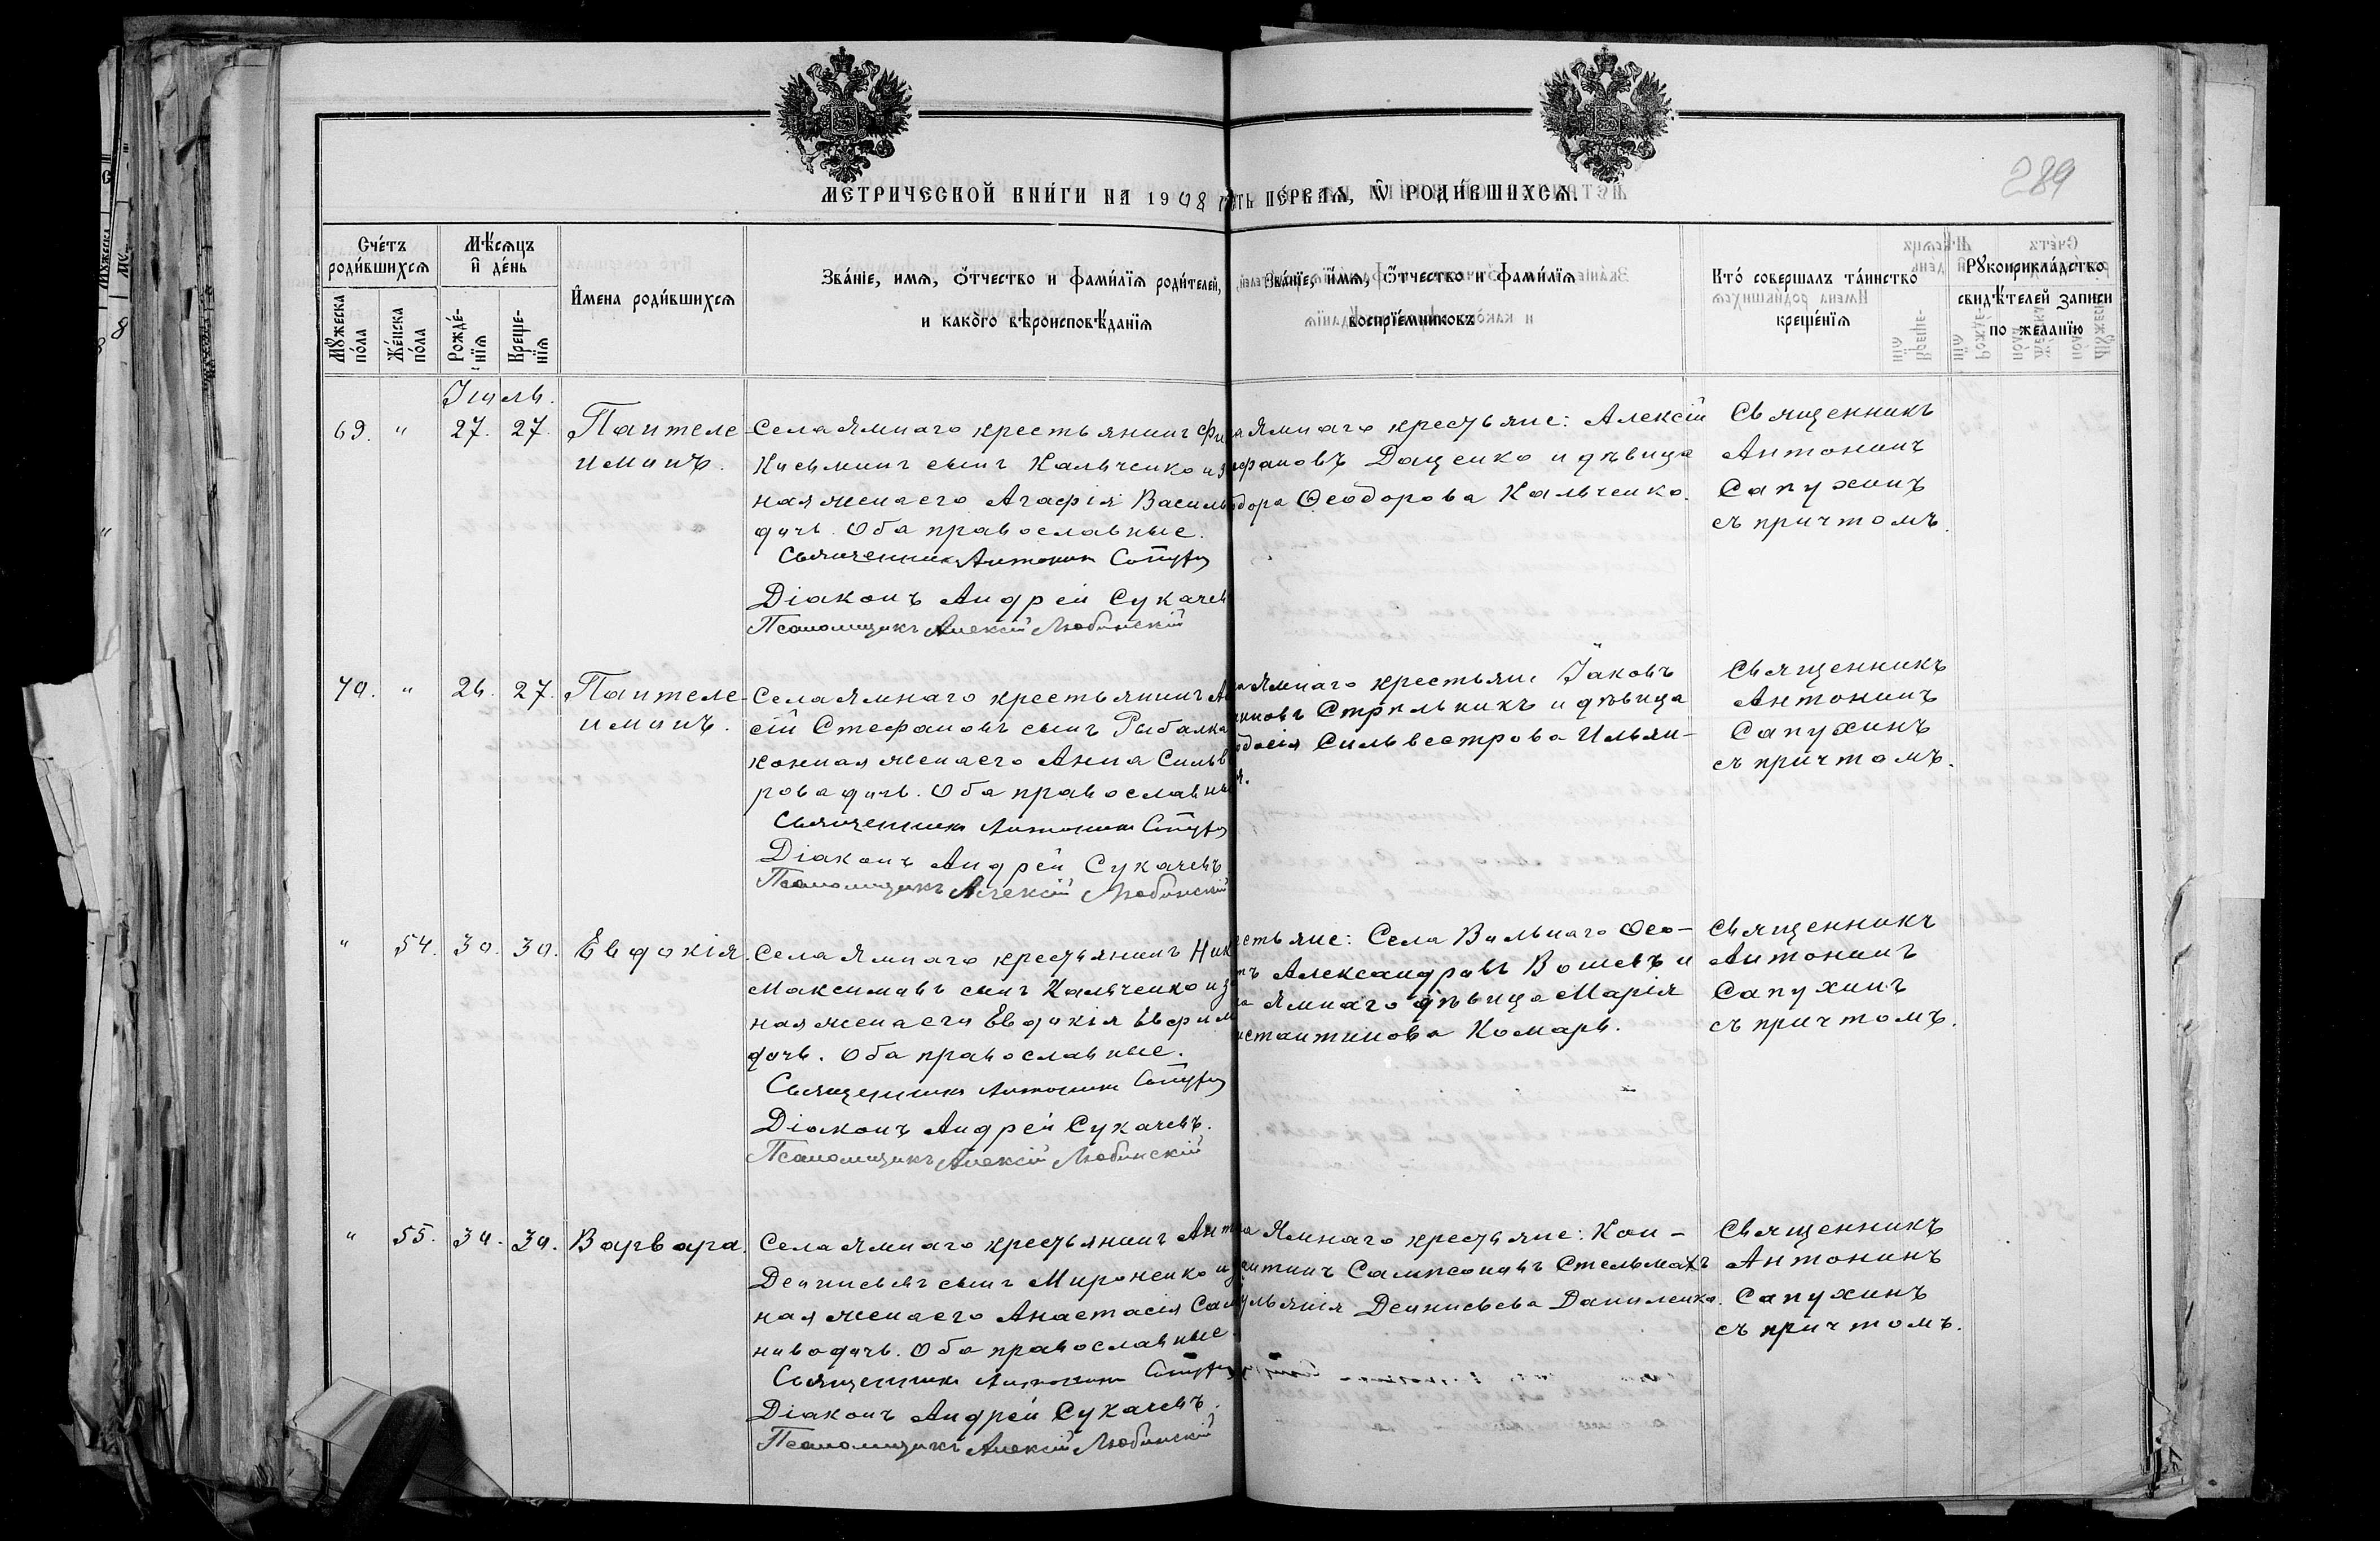 289
МЕТРИЧЕСКОЙ КНИ́ГИ НА 1908
ТЬ ПЕ́РВАЯ, Ѡ РОДИ́ВШИХСЯ.
Сче́тъ роди́вшихся
Мѣ́сяцъ и де́нь
Мꙋ́жеска по́ла
Же́нска по́ла
Рожде́-нїя
Креще-нїя
И́мена роди́вшихся
Зва́нїе, имя, о́тчество и фами́лїя роди́телей,
и како́го вѣроисповѣ́данїя
Зва́нїе, и́мя, о́тчество и фами́лїя
воспрїе́мниковъ
Кто́ соверша́лъ та́инство
креще́нїя
Рꙋкоприкла́дство
свидѣ́телей записи
по жела́нїю
Іюль.
69. " 27. 27. Пантеле-
имонъ.
Села Ямнаго крестьянинъ Фи
Косьминъ сынъ Кальченко и з
ная жена его Агафія Василь
дочь. Оба православные.
Священникъ Антонинъ Сапух
Діаконъ Андрей Сукачев
Псаломщикъ Алексій Любинскій
а Ямнаго крестьяне: Алексій
ефановъ Доценко и дѣвица
одора Ѳеодорова Кальченко.
Священникъ
Антонинъ
Сапухинъ
съ причтомъ.
70. " 26. 27. Пантеле-
имонъ.
Села Ямнаго крестьянинъ Ал
сій Стефановъ сынъ Рыбалка
конная жена его Анна Сильв
рова дочь. Оба православны
Священникъ Антонинъ Сапух
Діаконъ Андрей Сукачевъ
Псаломщикъ Алексій Любинскій
а Ямнаго крестьяне Іаковъ
Стрѣльникъ и дѣвица
одосія Сильвестрова Ильин-
я.
Священникъ
Антонинъ
Сапухинъ
съ причтомъ.
" 54. 30. 30. Евдокія.
Села Ямнаго крестьянинъ Ник
Максимовъ сынъ Кальченко и з
ная жена его Евдокія Евфим
дочь. Оба православные.
Священникъ Антонинъ Сапух
Діаконъ Андрей Сукачевъ.
Псаломщикъ Алексій Любинскій
естьяне: Села Вольнаго Ѳео-
тъ Александровъ Вошевъ и
а Ямнаго дѣвица Марія
нстантинова Комарь.
Священникъ
Антонинъ
Сапухинъ
съ причтомъ.
" 55. 30. 30. Варвара.
Села Ямнаго крестьянинъ Ант
Деонисьевъ сынъ Мироненко и з
ная жена его Анастасія Самп
нова дочь. Оба православные
Священникъ Антонинъ Сапух
Діаконъ Андрей Сукачевъ.
Псаломщикъ Алексій Любинскій
а Ямнаго крестьяне: Кон-
антинъ Сампсоновъ Стельмахъ
ульянія Деонисьева Даниленко.
Священникъ
Антонинъ
Сапухинъ
съ причтомъ.